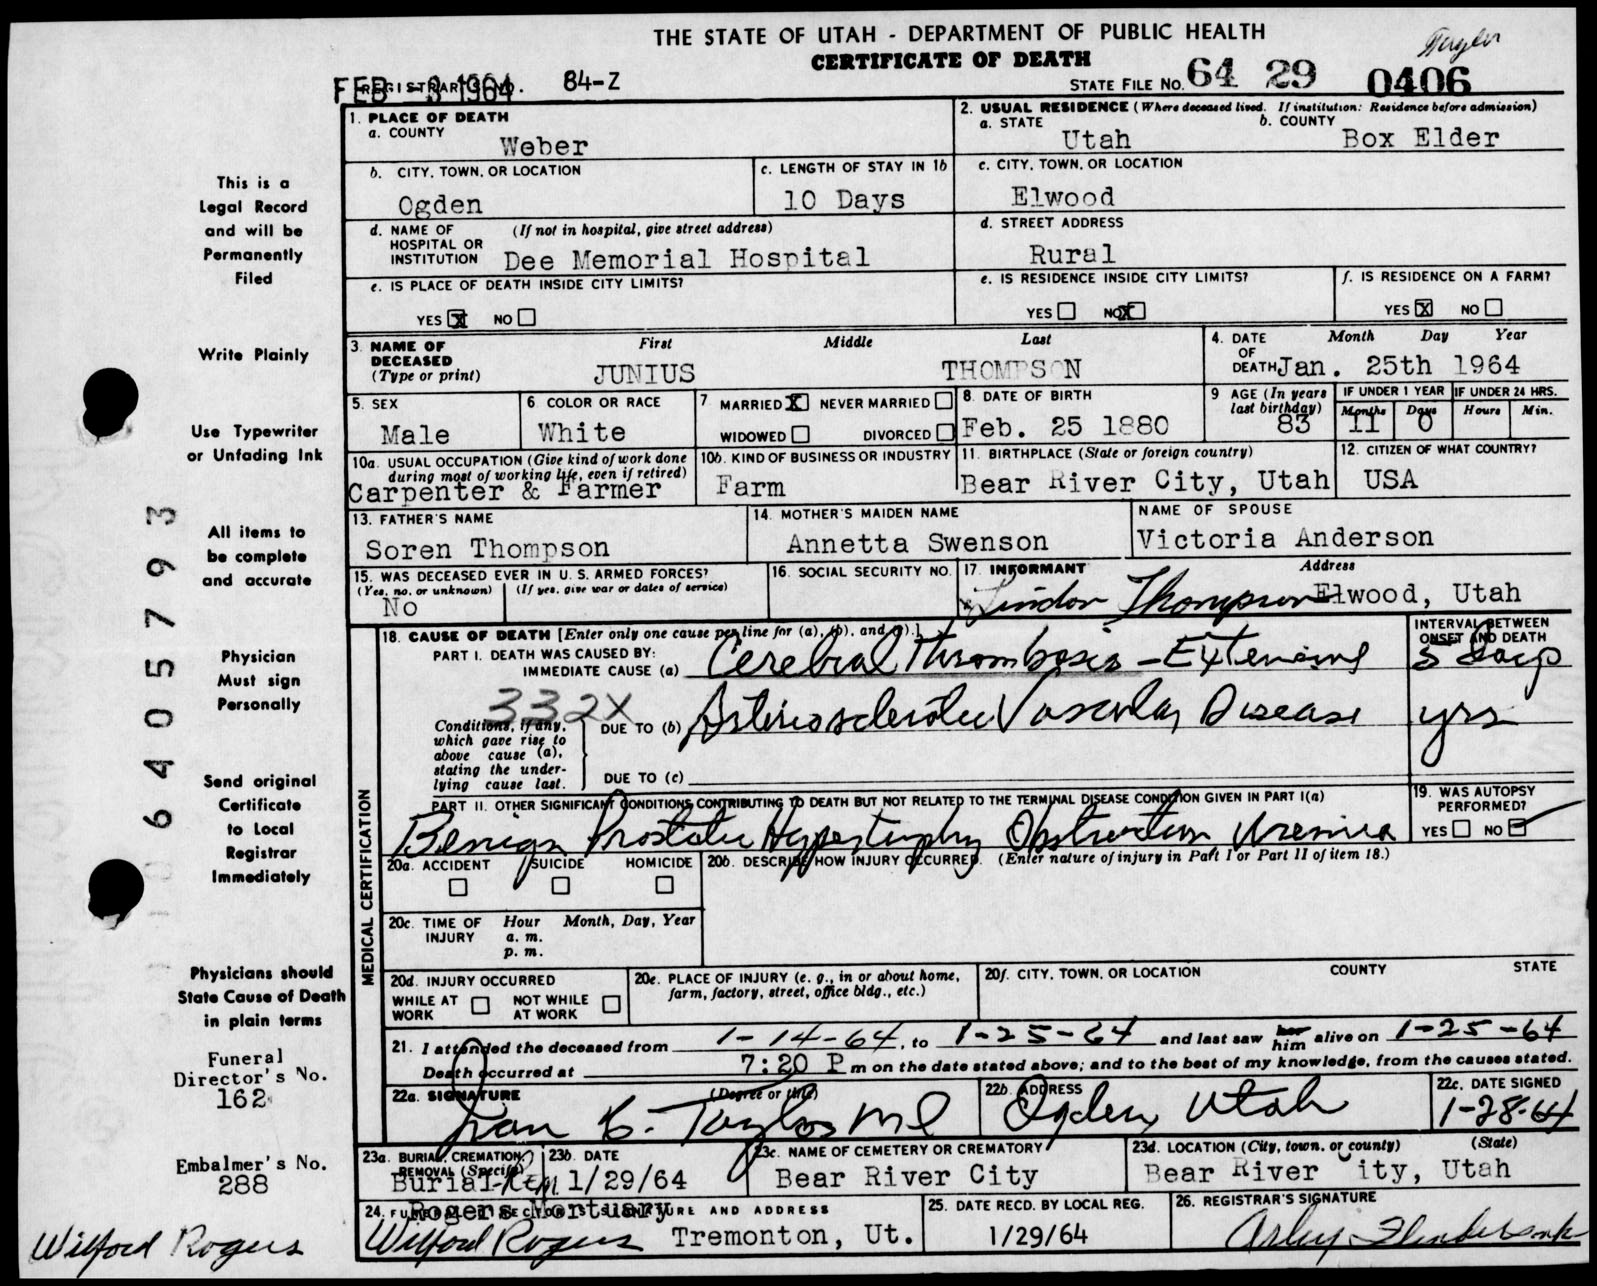 THE STATE OF UTAH - DEPARTMENT OF PUBLIC HEALTH
Taylor
CERTIFICATE OF DEATH
FEB - 3 1964 REGISTRAR'S NO. 84-Z STATE FILE NO. 64 29 0406
1. PLACE OF DEATH
a. COUNTY
Weber
2. USUAL RESIDENCE (Where deceased lived. If institution: Residence before admission)
a. STATE b. COUNTY
Utah Box Elder
b. CITY, TOWN, OR LOCATION
Ogden
c. LENGTH OF STAY IN 1b
10 Days
c. CITY, TOWN, OR LOCATION
Elwood
d. NAME OF (If not in hospital, give street address)
HOSPITAL OR
INSTITUTION Dee Memorial Hospital
d. STREET ADDRESS
Rural
e. IS PLACE OF DEATH INSIDE CITY LIMITS?
YES X NO
e. IS RESIDENCE INSIDE CITY LIMITS?
YES NO X
f. IS RESIDENCE ON A FARM?
YES X NO
3. NAME OF First Middle Last
DECEASED
(Type or print) JUNIUS THOMPSON
4. DATE Month Day Year
OF
DEATH Jan. 25th 1964
5. SEX
Male
6. COLOR OR RACE
White
7. MARRIED X NEVER MARRIED
WIDOWED DIVORCED
8. DATE OF BIRTH
Feb. 25 1880
9. AGE (In years
last birthday)
83
IF UNDER 1 YEAR IF UNDER 24 HRS.
Months Days Hours Min.
11 0
10a. USUAL OCCUPATION (Give kind of work done
during most of working life, even if retired)
Carpenter & Farmer
10b. KIND OF BUSINESS OR INDUSTRY
Farm
11. BIRTHPLACE (State or foreign country)
Bear River City, Utah
12. CITIZEN OF WHAT COUNTRY?
USA
13. FATHER'S NAME
Soren Thompson
14. MOTHER'S MAIDEN NAME
Annetta Swenson
NAME OF SPOUSE
Victoria Anderson
15. WAS DECEASED EVER IN U. S. ARMED FORCES?
(Yes, no, or unknown) (If yes, give war or dates of service)
No
16. SOCIAL SECURITY NO.
17. INFORMANT Address
x Lindon Thompson Elwood, Utah
MEDICAL CERTIFICATION
18. CAUSE OF DEATH [Enter only one cause per line for (a), (b), and (c).]
PART I. DEATH WAS CAUSED BY:
IMMEDIATE CAUSE (a) Cerebral Thrombosis - Extensive
INTERVAL BETWEEN
ONSET AND DEATH
5 days
332X
Conditions, if any,
which gave rise to
above cause (a),
stating the under-
lying cause last.
DUE TO (b) Arteriosclerotic Vascular Disease yrs
DUE TO (c)
PART II. OTHER SIGNIFICANT CONDITIONS CONTRIBUTING TO DEATH BUT NOT RELATED TO THE TERMINAL DISEASE CONDITION GIVEN IN PART I(a)
Benign Prostatic Hypertrophy Obstruction Uremia
19. WAS AUTOPSY
PERFORMED?
YES NO
20a. ACCIDENT SUICIDE HOMICIDE
20b. DESCRIBE HOW INJURY OCCURRED. (Enter nature of injury in Part I or Part II of item 18.)
20c. TIME OF Hour Month, Day, Year
INJURY a. m.
p. m.
20d. INJURY OCCURRED
WHILE AT NOT WHILE
WORK AT WORK
20e. PLACE OF INJURY (e. g., in or about home,
farm, factory, street, office bldg., etc.)
20f. CITY, TOWN, OR LOCATION COUNTY STATE
21. I attended the deceased from 1-14-64, to 1-25-64 and last saw her him alive on 1-25-64
Death occurred at 7:20 P m on the date stated above; and to the best of my knowledge, from the causes stated.
22a. SIGNATURE (Degree or title)
B. Taylor MD
22b. ADDRESS
Ogden, Utah
22c. DATE SIGNED
1-28-64
23a. BURIAL, CREMATION,
REMOVAL (Specify)
Burial-Rem.
23b. DATE
1/29/64
23c. NAME OF CEMETERY OR CREMATORY
Bear River City
23d. LOCATION (City, town, or county) (State)
Bear River ity, Utah
24. FUNERAL DIRECTOR'S SIGNATURE AND ADDRESS
Rogers Mortuary
Wilford Rogers Tremonton, Ut.
25. DATE RECD. BY LOCAL REG.
1/29/64
26. REGISTRAR'S SIGNATURE
This is a
Legal Record
and will be
Permanently
Filed
Write Plainly
Use Typewriter
or Unfading Ink
All items to
be complete
and accurate
Physician
Must sign
Personally
Send original
Certificate
to Local
Registrar
Immediately
Physicians should
State Cause of Death
in plain terms
Funeral
Director's No.
162
Embalmer's No.
288
Wilford Rogers
6405793